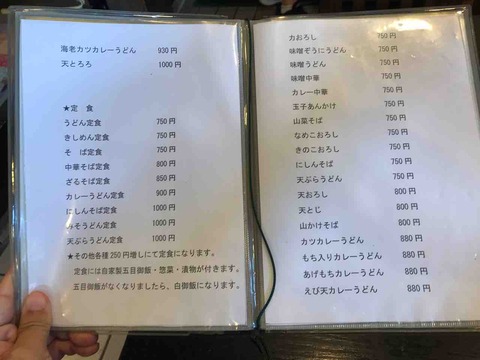 海老カツカレーうどん 930円
天とろろ 1000円
★定 食
うどん定食 750円
きしめん定食 750円
そ ば定食 750円
中華そば定食 800円
ざるそば定食 850円
カレーうどん定食 900円
にしんそば定食 1000円
みそうどん定食 1000円
天ぷらうどん定食 1000円
★その他各種250円増しにて定食になります。
定食には自家製五目御飯・惣菜・漬物が付きます。
五目御飯がなくなりましたら、白御飯になります。
力おろし 750円
味噌ぞうにうどん 750円
味噌うどん 750円
味噌中華 750円
カレー中華 750円
玉子あんかけ 750円
山菜そば 750円
なめこおろし 750円
きのこおろし 750円
にしんそば 750円
天ぷらうどん 750円
天おろし 800円
天とじ 800円
山かけそば 800円
カツカレーうどん 880円
もち入りカレーうどん 880円
あげもちカレーうどん 880円
えび天カレーうどん 880円